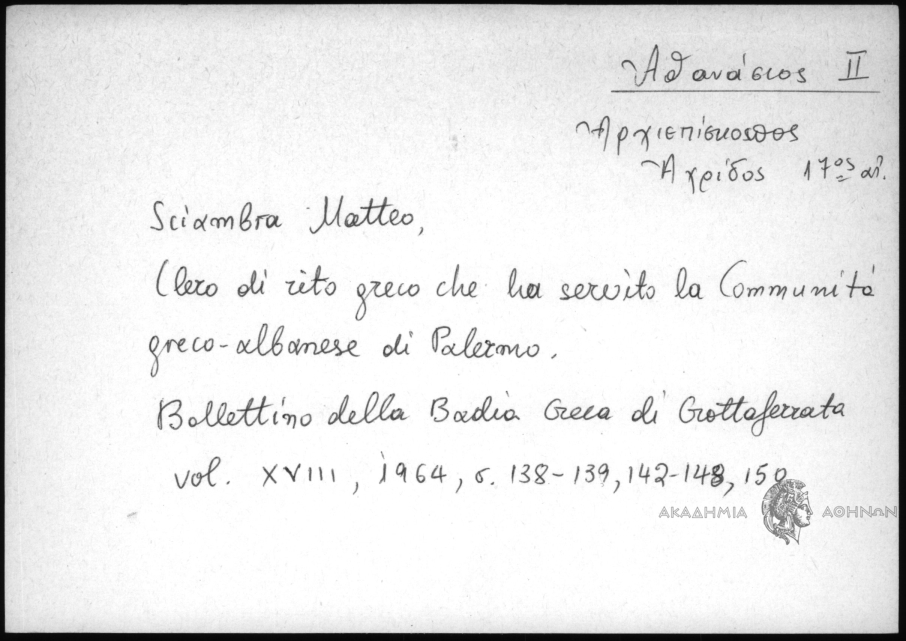 Ἀθανάσιος II
Ἀρχιεπίσκοπος
Ἀχρίδος 17ος αἰ.
Sciambra Matteo,
Clero di rito greco che ha servito la Communità
greco-albanese di Palermo.
Bollettino della Badia Greca di Grottaferrata
vol. XVIII, 1964, σ. 138-139, 142-148, 150
ΑΚΑΔΗΜΙΑ ΑΘΗΝΩΝ